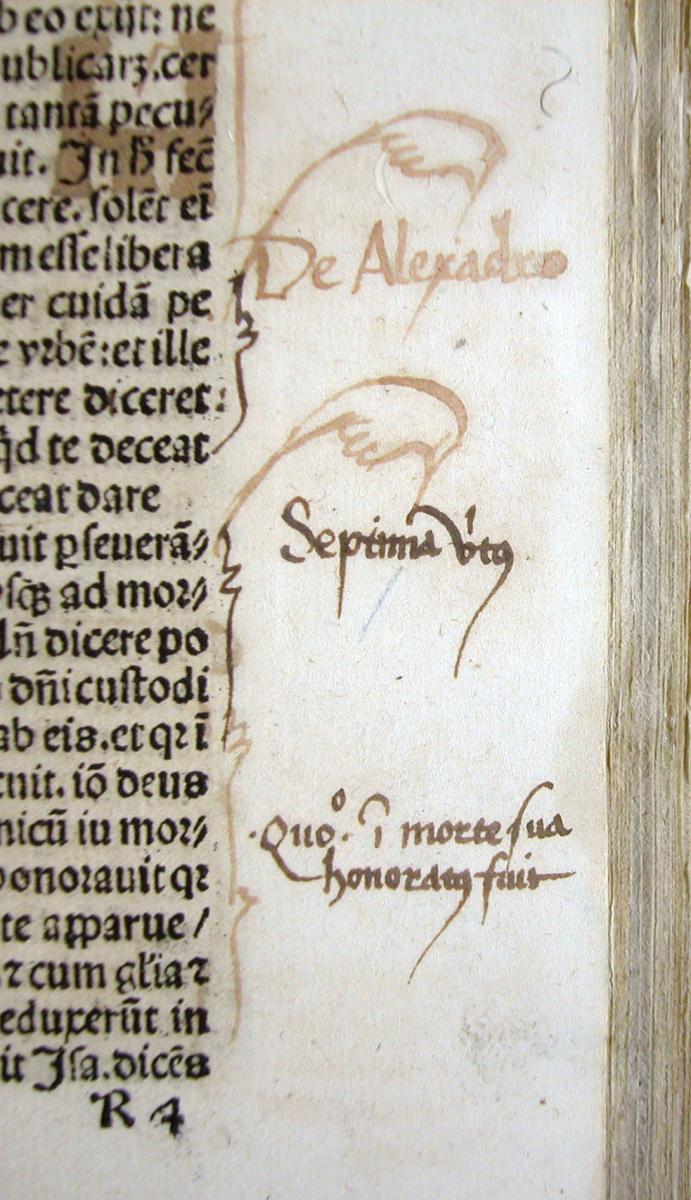 b eo exijt: ne
ublicarꝫ.cer
tantā pecu⸗
uit. In ħ fec̄
cere. solēt ei
m esse libera
er cuidā pe
vrbē: et ille
etere diceret:
q̇d te deceat
ceat dare
uit ꝑseuerā⸗
sqꝫ ad mor⸗
ln̄ dicere po
dn̄i custodi
ab eis. et qꝛ ī
cuit. iō deus
nicū iu mor⸗
honorauit qꝛ
te apparue/
ꝛ cum gl̄ia ꝛ
eduxerūt in
it Isa. dicēs
R 4
De Alexādro
Septima v̇tꝰ
.Quoº. ī morte sua
honoratꝰ fuit